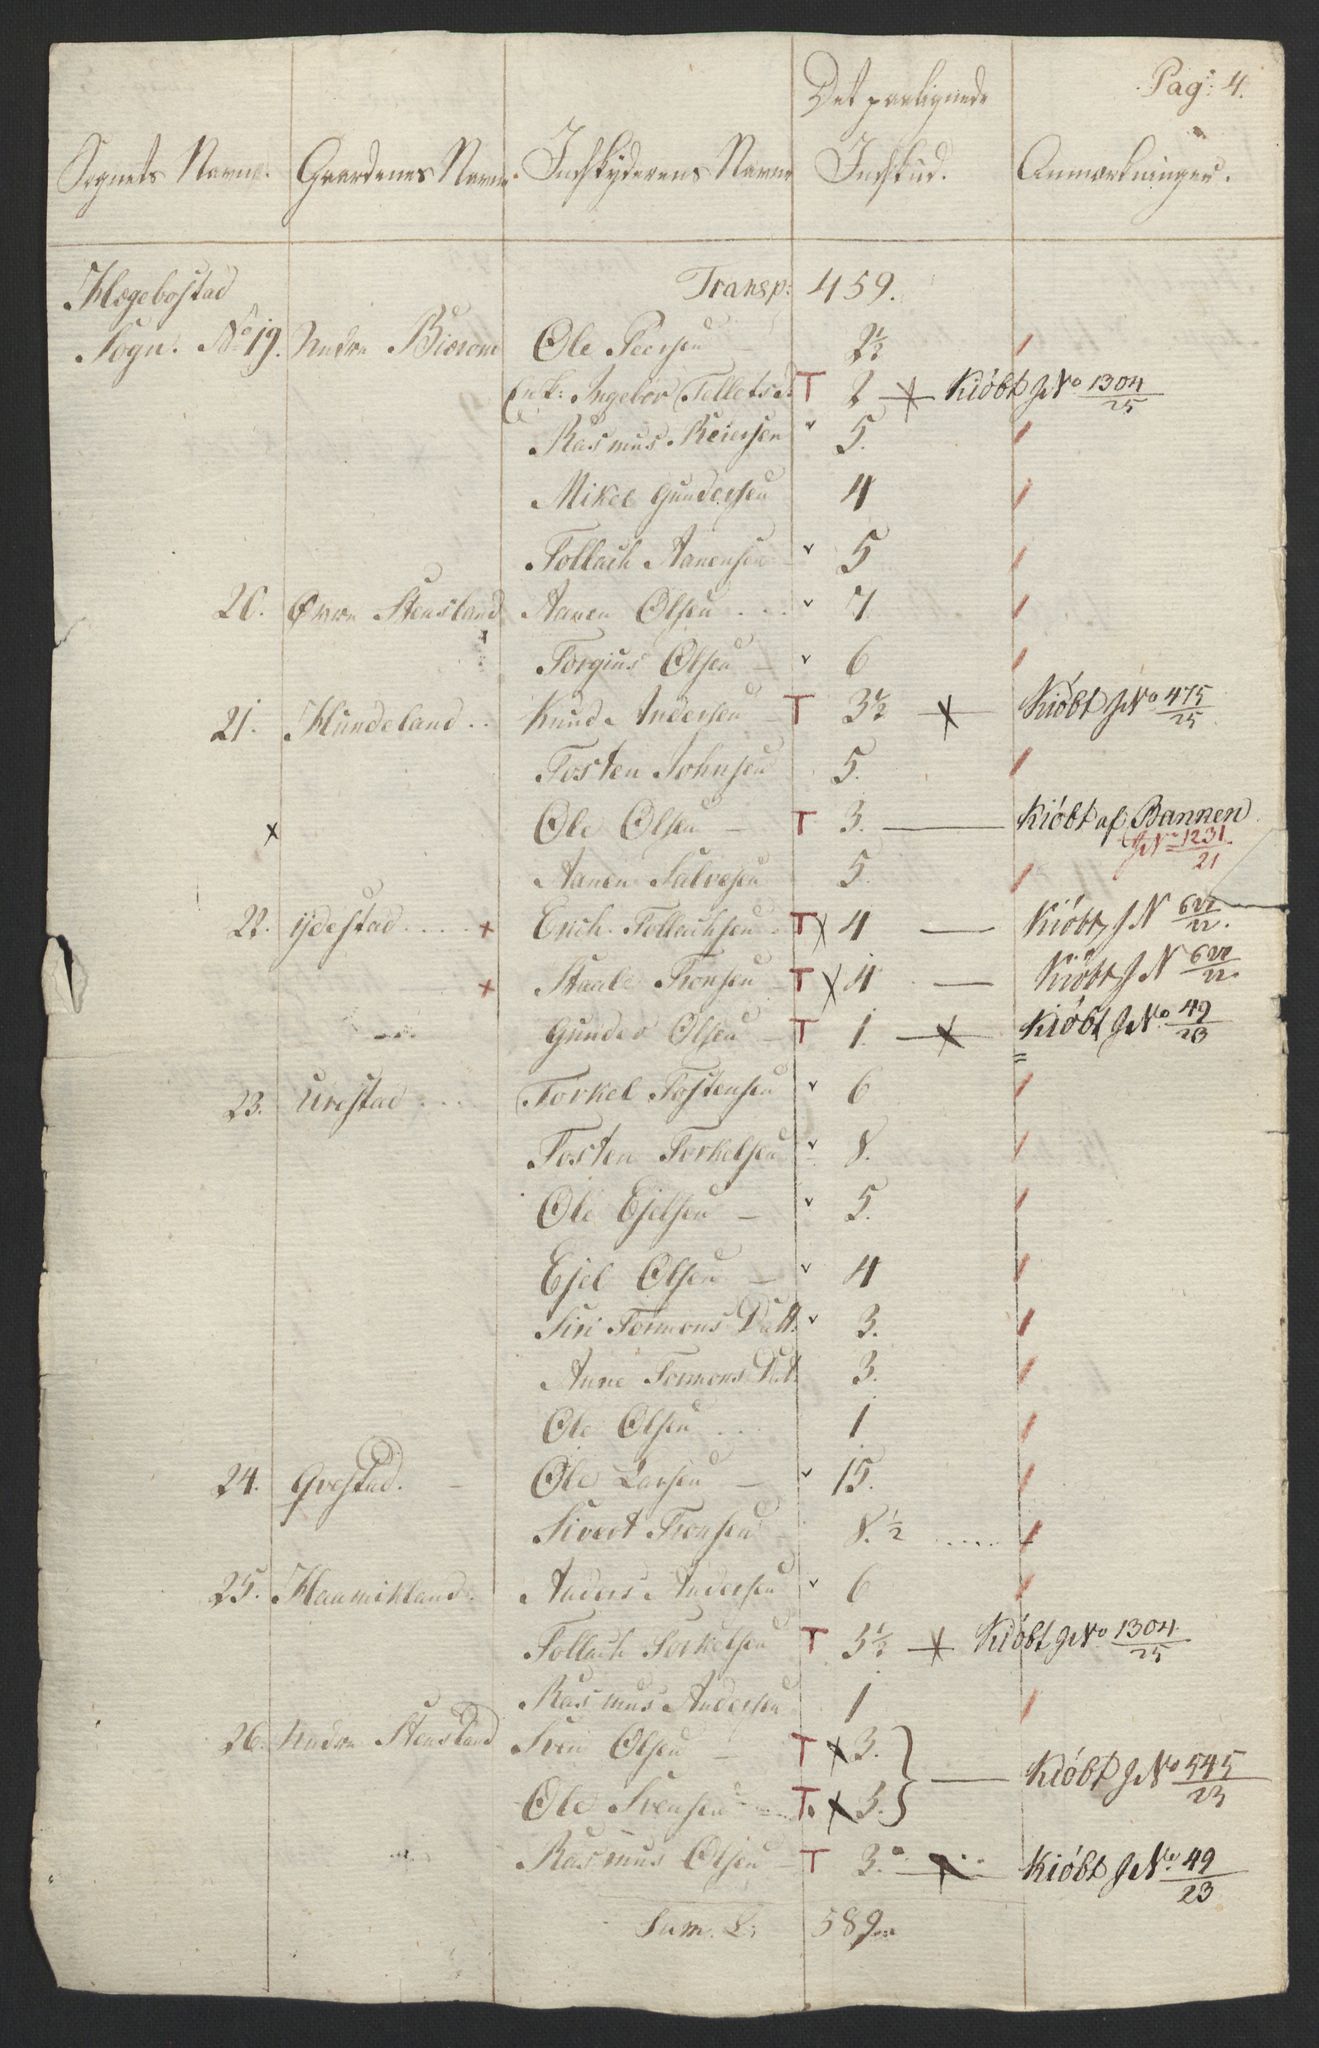 Pag: 4.
Det paalignede
Sognets Navne. Gaardenes Navne. Indskyderens Navne Indskud. Anmærkninger.
Hægebostad Transp: 459.
Sogn. No 19. Nedre Biorom Ole Peersen 2½
Enk: Ingebor Tellefsd. T 2 Kiöbt J No 1304/25
Rasmus Reiersen 5.
Mikel Gundersen 4
Tollach Aanensen 5
20. Øvre Stensland Aanen Olsen 7.
Torgius Olsen 6
21. Hundeland Knud Andersen T 3½ Kiöbt J No 475/25
Tosten Johnsen 5.
x Ole Olsen T 3. Kiöbt af Bannen
J No 1231/21
Aanen Salvesen 5.
22. ydestad + Erich Tollachsen T x 4 Kiöbt J N 622/22.
+ Staale Tronsen T x 4 Kiöbt J N 622/22.
Gunder Olsen T 1. Kiöbt J No. 49/23
23. Urestad Torkel Tostensen 6
Tosten Torkelsen 8.
Ole Ejelsen 5.
Ejel Olsen 4
Siri Tormons Datt. 3.
Anne Tormons Dat. 3.
Ole Olsen 1
24. Gvestad. Ole Larsen 15.
Sivert Tronsen 8.½
25. Haumikland. Anders Andersen 6
Tollach Torkelsen T 5½ Kiöbt J No 1304./25
Rasmus Andersen 1
26. Nedre Stensland Sven Olsen T x 3.
Ole Svensen T. x 5. Kiöbt J No 545/23
Rasmus Olsen T 3. Kiöbt J No. 49/23
Sum. L: 589